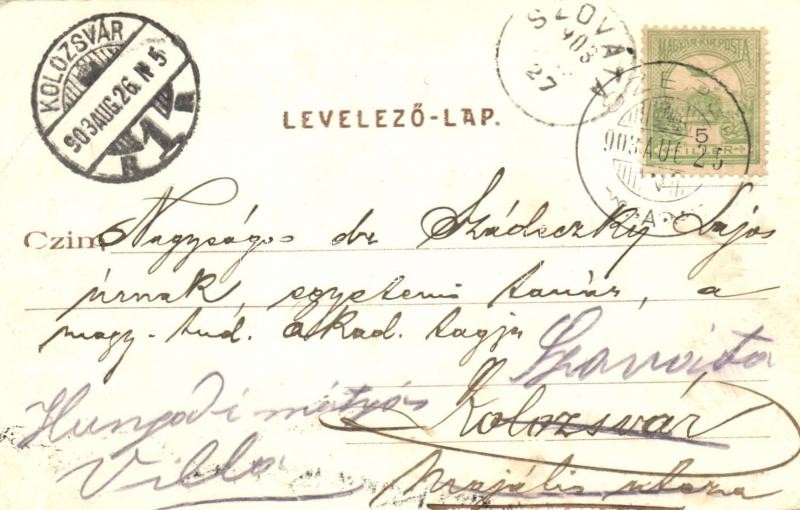 KOLOZSVÁR
903 AUG. 26. N 5
1
LEVELEZŐ-LAP.
SZOVÁTA
903
27
MAGYAR KIR. POSTA
5
FILLÉR
903 AUG 25
Czim Nagyságos dr Szádeczky Lajos
úrnak, egyetemi tanár, a
magy. tud. akad. tagja
Szováta
Hunyadi mátyás
Kolozsvár
Villa
Majális utcza